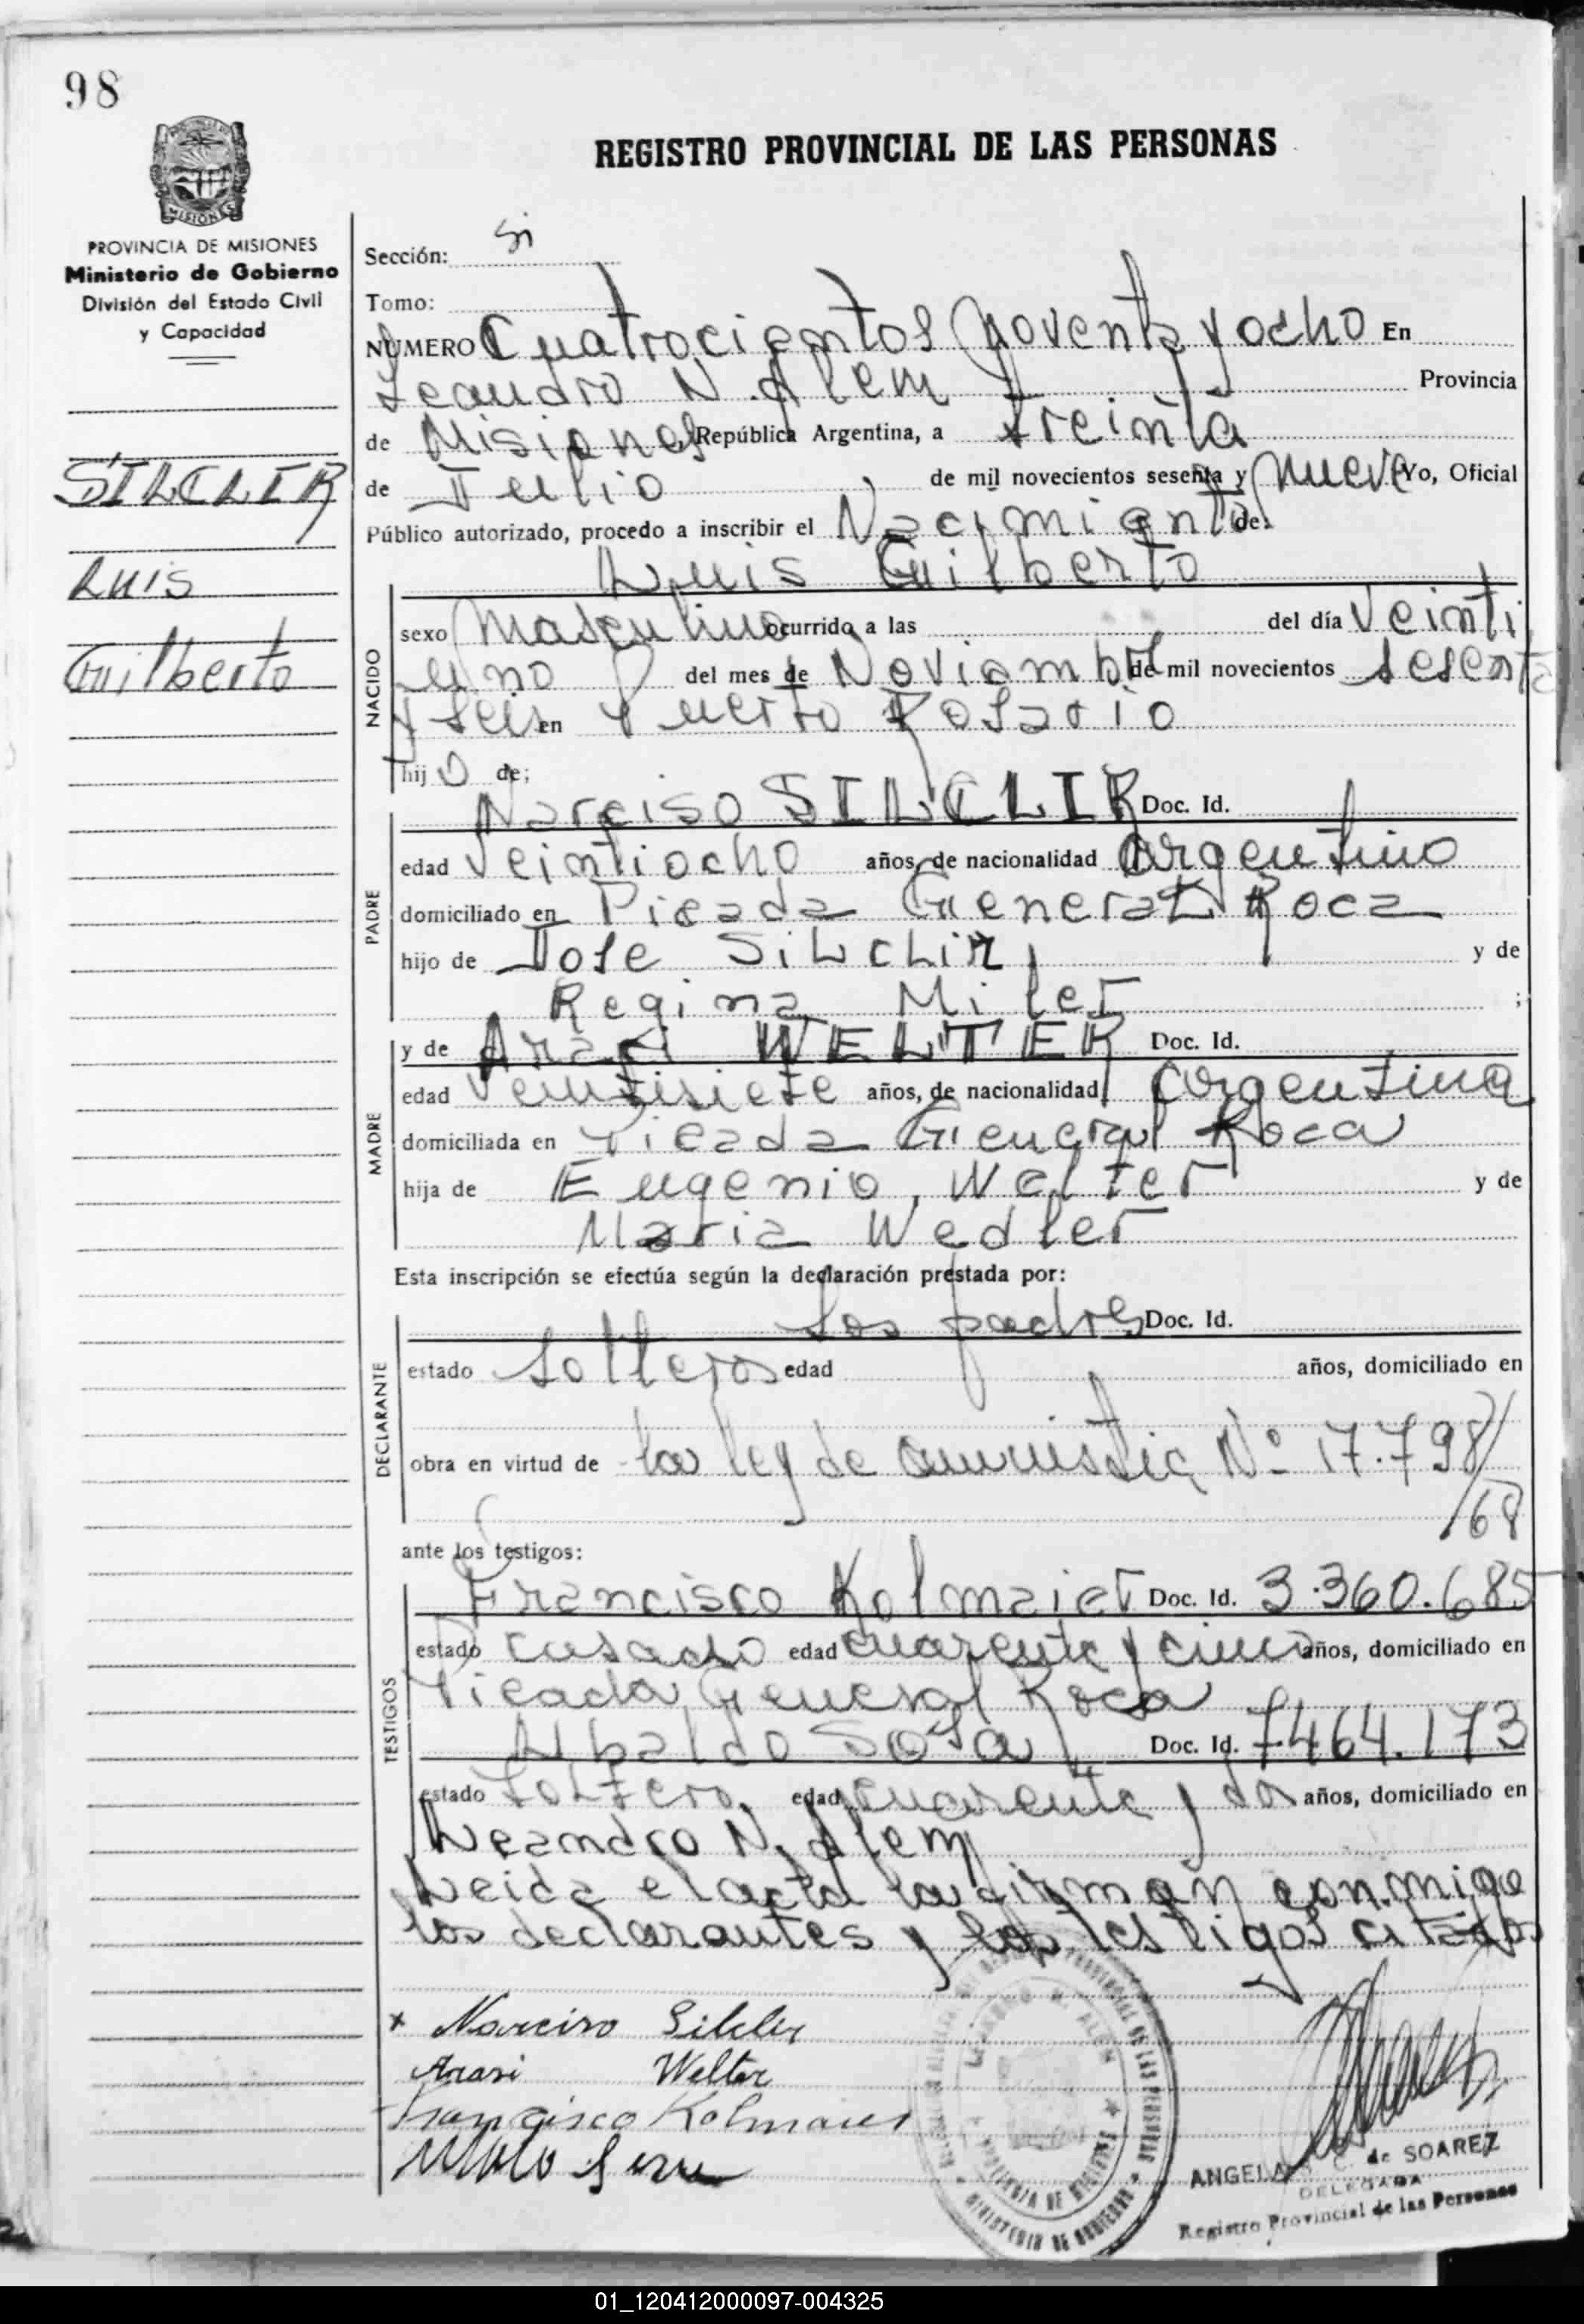 98
REGISTRO PROVINCIAL DE LAS PERSONAS
MISIONES
PROVINCIA DE MISIONES
Ministerio de Gobierno
División del Estado Civil
y Capacidad
SILCLIR
Luis
Guilberto
Sección:
Tomo:
NUMERO Cuatrocientos Noventa y ocho En
Leandro N. Alem Provincia
de Misiones República Argentina, a treinta
de Julio de mil novecientos sesenta y nueve Yo, Oficial
Público autorizado, procedo a inscribir el Nacimiento de:
Luis Guilberto
NACIDO
sexo Masculino ocurrido a las del día Veinti
uno del mes de Noviembre de mil novecientos sesenta
y seis en Puerto Rosario
hijo de;
PADRE
Narciso SILCLIR Doc. Id.
edad Veintiocho años, de nacionalidad argentino
domiciliado en Picada General Roca
hijo de Jose Silclir y de
Regina Miler ;
MADRE
y de Araci WELTER Doc. Id.
edad Veintisiete años, de nacionalidad argentina
domiciliada en Picada General Roca
hija de Eugenio Welter y de
Maria Wedler
Esta inscripción se efectúa según la declaración prestada por:
DECLARANTE
Los padres Doc. Id.
estado solteros edad años, domiciliado en
obra en virtud de la ley de amnistia Nº 17.798/
/68
ante los testigos:
TESTIGOS
Francisco Kolmaier Doc. Id. 3.360.685
estado casado edad cuarenta y cinco años, domiciliado en
Picada General Roca
Ubaldo Sosa Doc. Id. 7464.173
estado soltero, edad cuarenta y dos años, domiciliado en
Leandro N. Alem
Leida el acta la firman conmigo
los declarantes y los testigos citados
x Narciso Silclir
Arasi Welter
Francisco Kolmaier
ANGELA de SOAREZ
DELEGADA
Registro Provincial de las Personas
LEANDRO N. ALEM
PROVINCIA DE MISIONES
MINISTERIO DE GOBIERNO
01_120412000097-004325